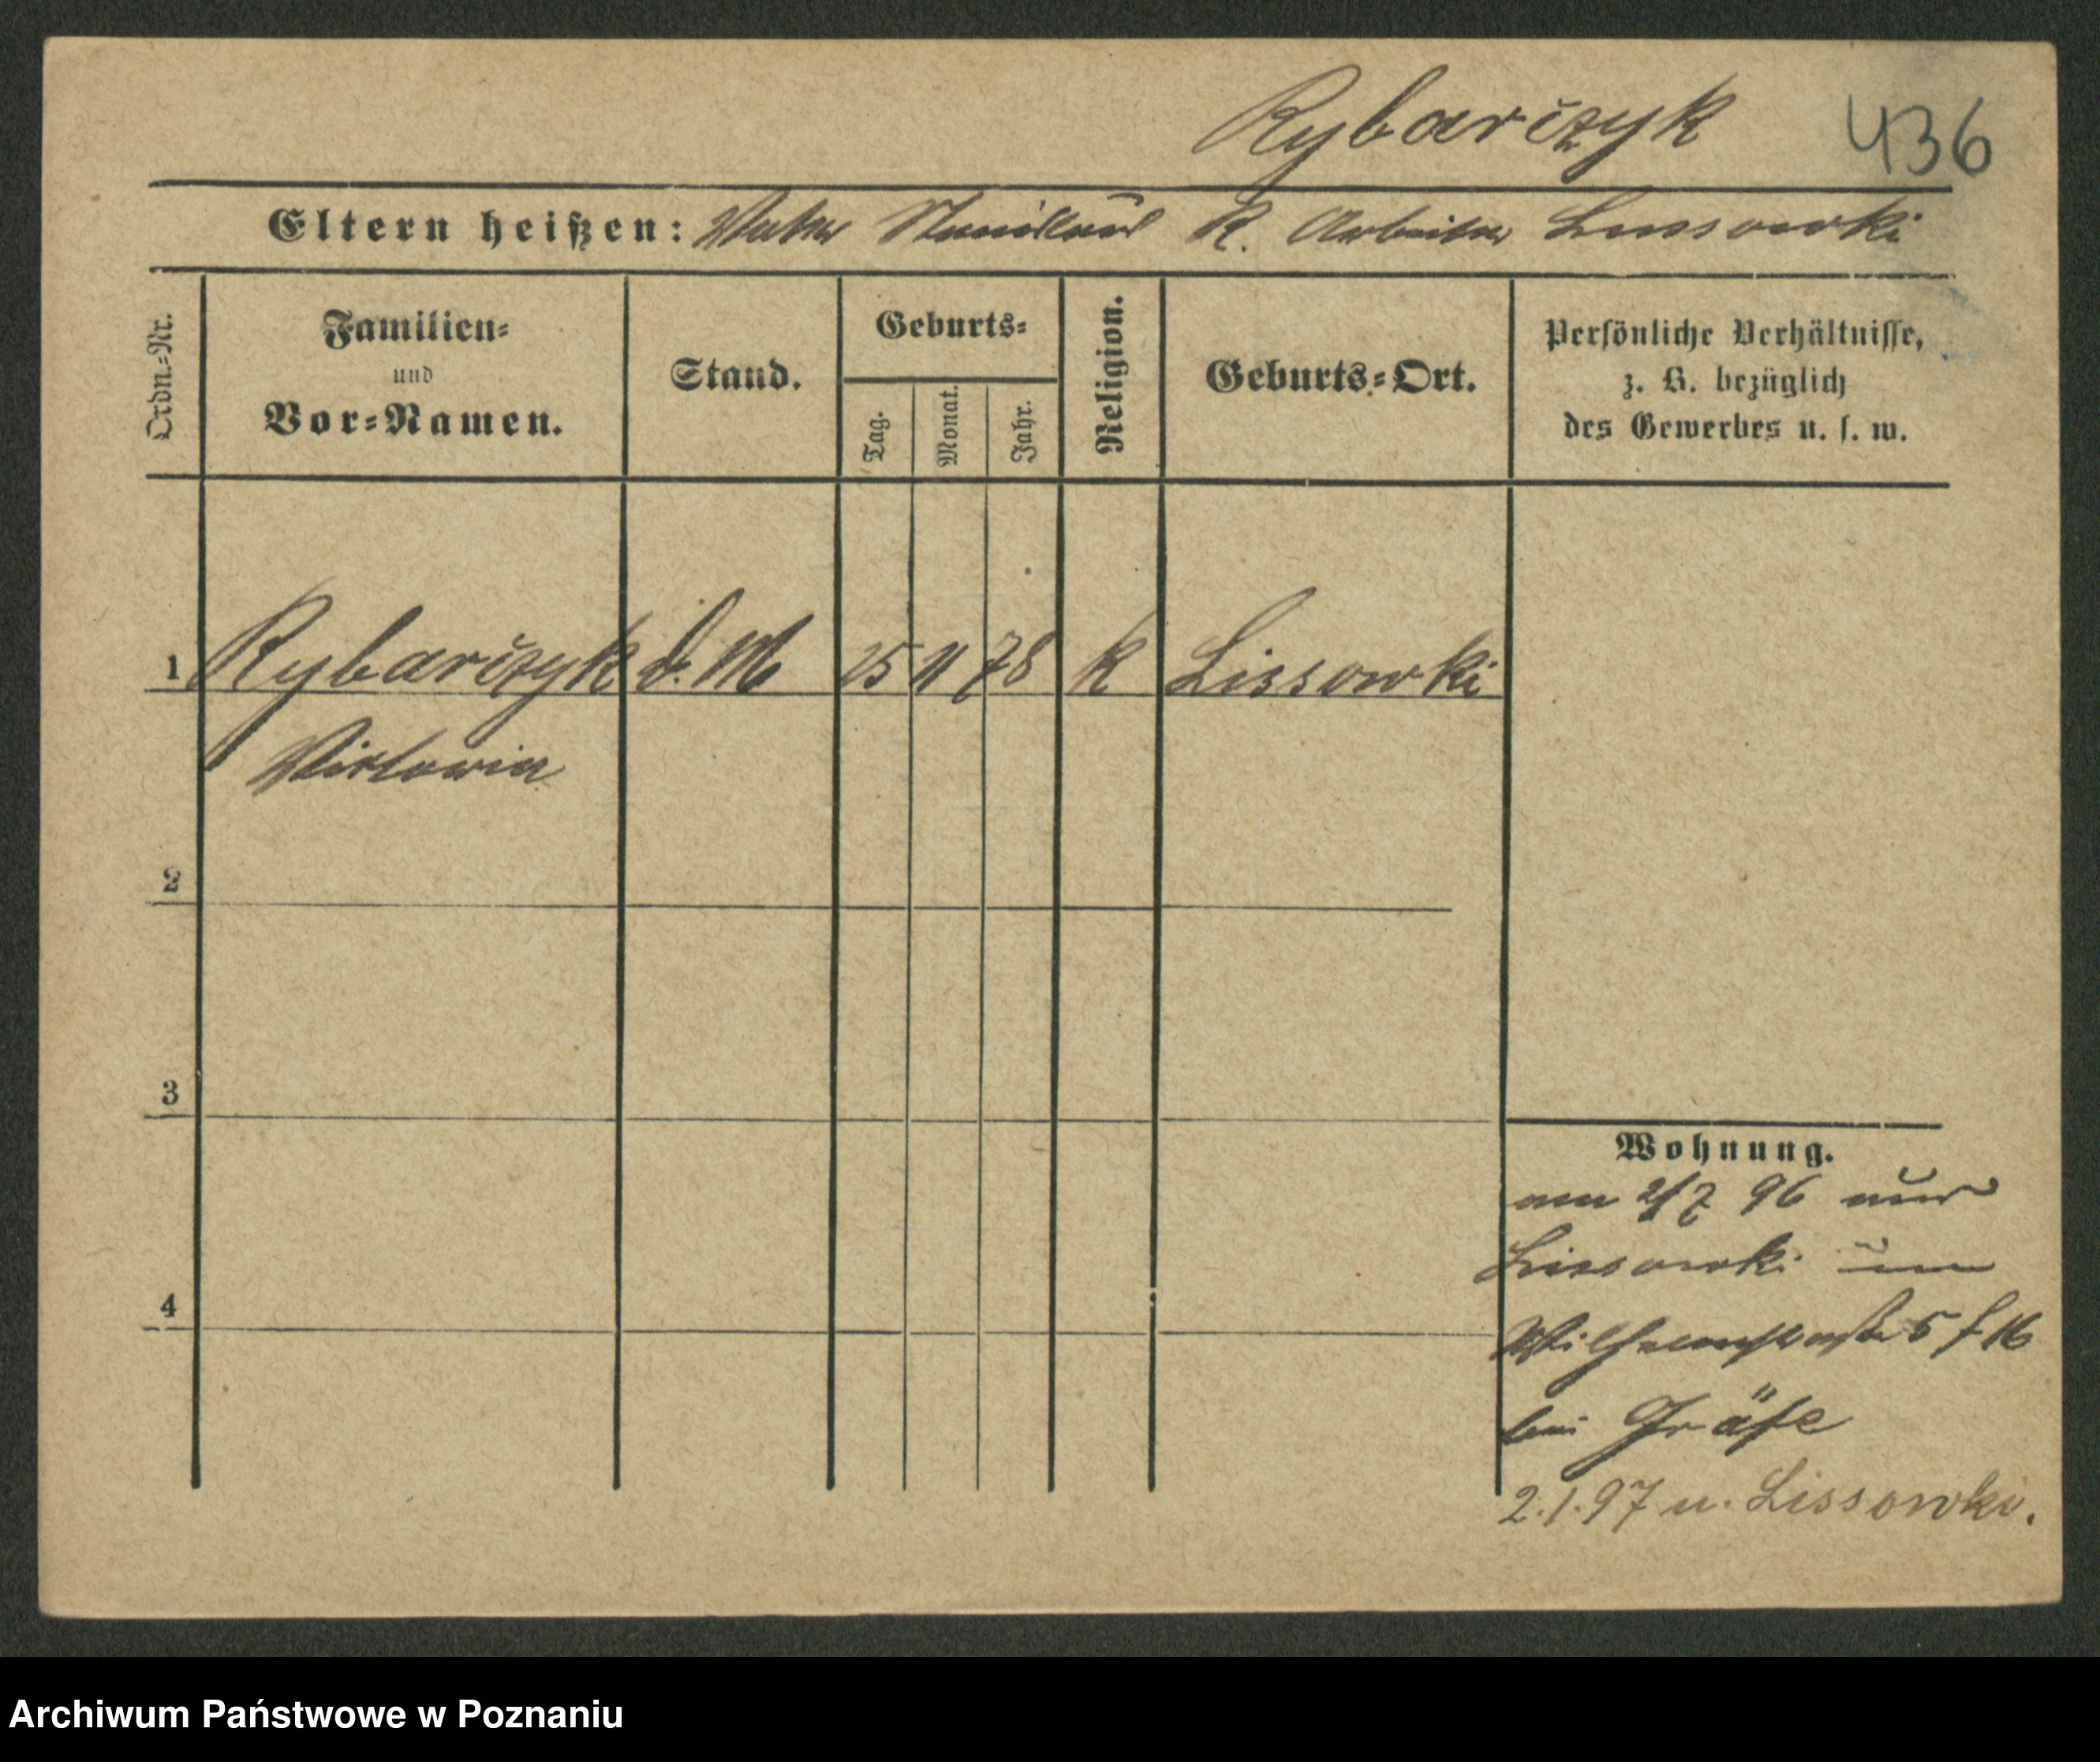 Rybarczyk 436
Eltern heißen: Vater Stanislaus R. Arbeiter Lussowki
Ordn.=Nr.
Familien=
und
Vor=Namen.
Stand.
Geburts=
Tag.
Monat.
Jahr.
Religion.
Geburts=Ort.
Persönliche Verhältnisse,
z. B. bezüglich
des Gewerbes u. s. w.
1 Rybarczyk d. M 25 11 78 K Lissowki
Viktoria
2
3
4
Wohnung.
am 2/7 96 aus
Lissowki
Wilhelmstraße 5
bei Gräfe
2.1.97 n. Lissowki.
Archiwum Państwowe w Poznaniu